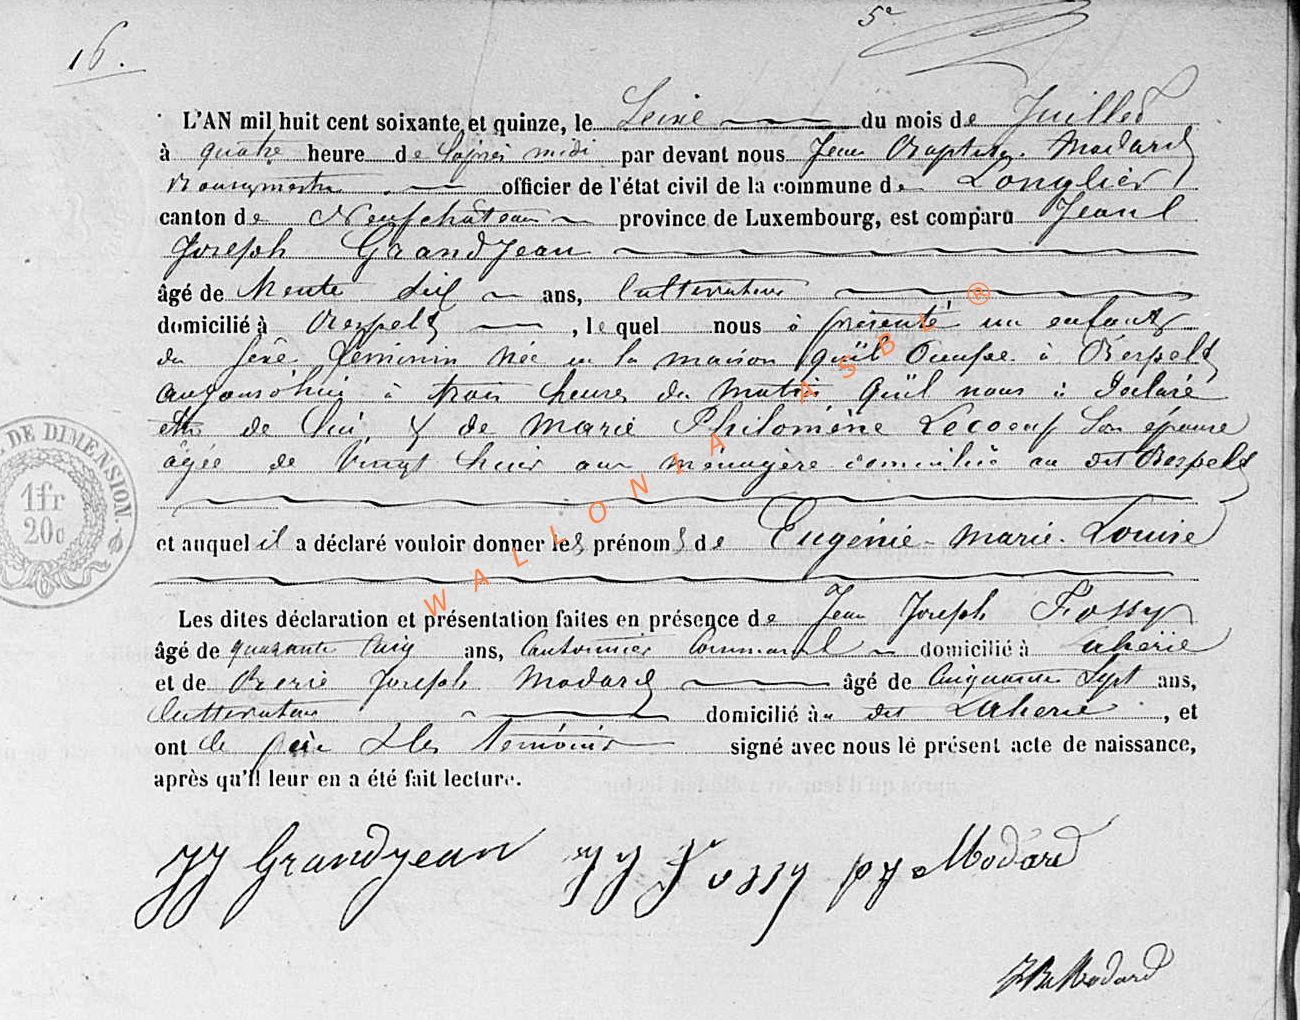 16.
5e
L'AN mil huit cent soixante et quinze, le Seize du mois de Juillet
à quatre heure de l'après midi par devant nous Jean Baptiste Modard
Bourgmestre officier de l'état civil de la commune de Longlier
canton de Neufchâteau province de Luxembourg, est comparu Jean
Joseph Grandjean
âgé de trente dix ans, Cultivateur
domicilié à Respelt, lequel nous à présenté un enfant
du sexe féminin née en la maison qu'il Occupe à Respelt
aujourd'hui à trois heures du matin qu'il nous à déclaré
être de lui & de Marie Philomène Lecoeuf Son épouse
âgée de Vingt huit ans ménagère domiciliée au dit Respelt
et auquel il a déclaré vouloir donner les prénoms de Eugénie Marie Louise
Les dites déclaration et présentation faites en présence de Jean Joseph Fossy
âgé de quarante Cinq ans, Cantonnier Communal domicilié à Laherie
et de Joseph Modard âgé de Cinquante Sept ans,
Cultivateur domicilié au dit Laherie, et
ont le père & les témoins signé avec nous le présent acte de naissance,
après qu'il leur en a été fait lecture.
JJ Grandjean JJ Fossy PJ Modard
JB Modard
DE DIMENSION.
1fr
20c
WALLONIA ASBL ®